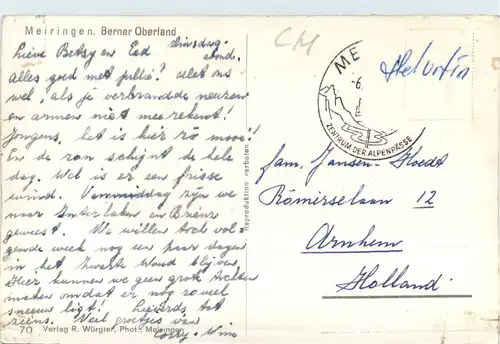 Meiringen. Berner Oberland
Dinsdag-
Lieve Betsy en Eed avond.
Alles goed met jullie? Met ons
wel, als je verbrandde neuzen
en armen niet meerekent!
Jongens, het is hier zó mooi!
En de zon schijnt de hele
dag. Wel is er een frisse
wind. Vanmiddag zijn we
naar Interlaken en Brienz
geweest. We willen toch vol-
gende week nog een paar dagen
in het Zwarte Woud blijven.
Hier kunnen we geen grote tochten
maken omdat er nog zoveel
sneeuw ligt! Luierds, tot
ziens. Veel groetjes van
Corry + Wim
70 Verlag R. Würgler, Phot., Meiringen
Reproduktion verboten
CM
ME
-6.
ZENTRUM DER ALPENPÄSSE
Helvetia
fam. Jansen-Hoedt
Römerselaan 12
Arnhem
Holland